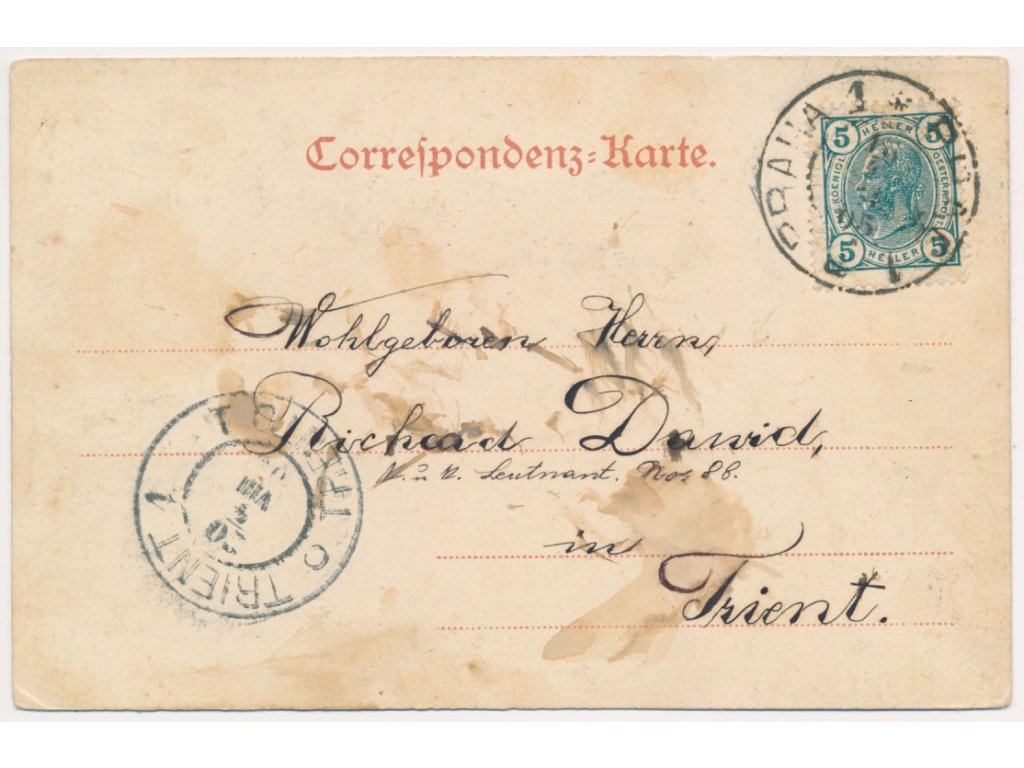 Correspondenz-Karte.
PRAHA 1 * PRAG 1
5 HELLER 5
5 HELLER 5
Wohlgeboren Herrn,
Richard Dawid,
K. u. K. Leutnant. No: 88.
in
Trient.
TRIENT 1
TRENTO
VIII